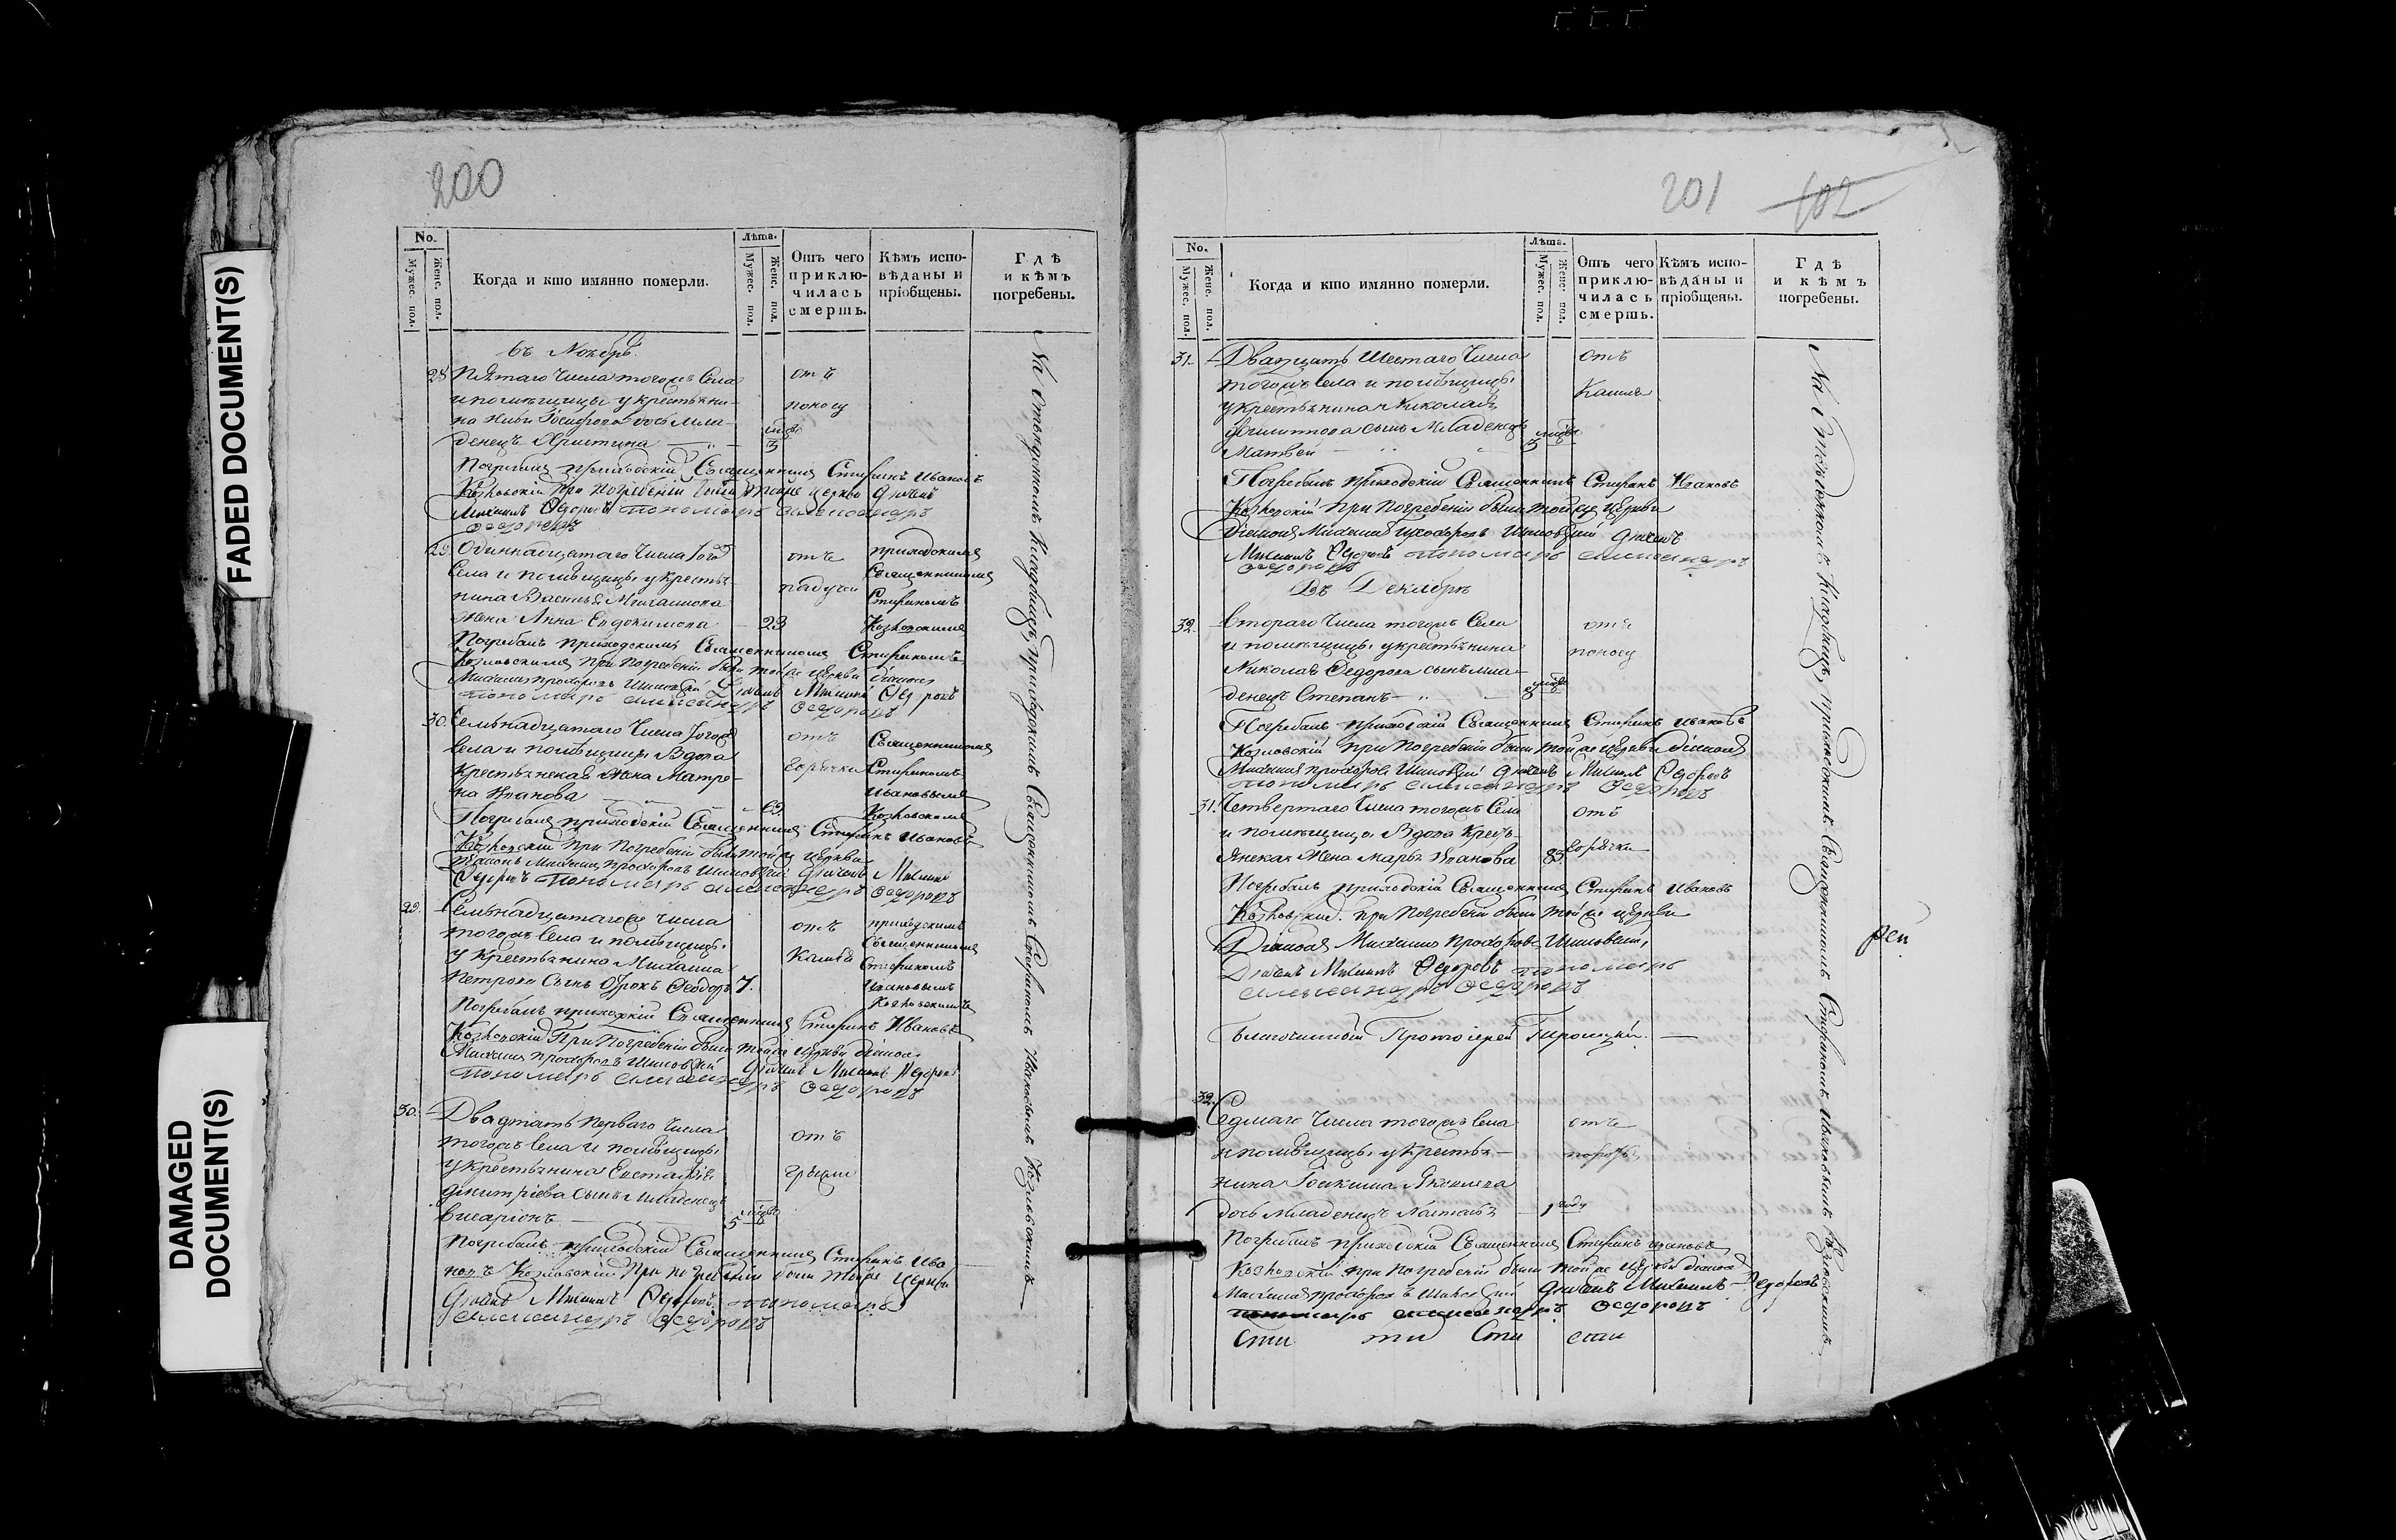 FADED DOCUMENT(S)
DAMAGED
DOCUMENT(S)
200
No.
Мужес. пол.
Женс. пол.
Когда и кто имянно померли.
Лѣта.
Мужес. пол.
Женс. пол.
Отъ чего
приклю-
чилась
смерть.
Кѣмъ испо-
вѣданы и
пріобщены.
Гдѣ
и кѣмъ
погребены.
въ Ноябрѣ
28 Пятаго числа тогожъ села
и помѣщицы у крестьяни-
на Осифова дочь мла-
денецъ Христина
мцъ
3
отъ
поносу
Погребалъ приходскій Священникъ Стефанъ Ивановъ
Козловскій при погребеніи были тойже церкви дьячекъ
Михаилъ Федоровъ пономарь Александръ
Федоровъ
29. Одиннадцатаго числа того
села и помѣщицы у крестья-
нина Василья
жена Анна Евдокимова
23
отъ
падучей
приходскимъ
Священникомъ
Стефаномъ
Козловскимъ
Погребалъ приходскимъ Священникомъ Стефаномъ
Козловскимъ при погребеніи были тойже церкви діаконъ
Михаилъ Прохоровъ дьячекъ Михаилъ Федоровъ
пономарь Александръ Федоровъ
30. Семьнадцатаго числа того
села и помѣщицы вдова
крестьянская жена Матре-
на Иванова
69
отъ
горячки
Священникомъ
Стефаномъ
Ивановымъ
Козловскимъ
Погребалъ приходскій Священникъ Стефанъ Ивановъ
Козловскій при погребеніи были тойже церкви
діаконъ Михаилъ Прохоровъ дьячекъ Михаилъ
Федоровъ пономарь Александръ Федоровъ
29. Семьнадцатаго числа
тогожъ села и помѣщицы
у крестьянина Михаила
Петрова сынъ отрокъ Феодоръ 7.
отъ
кашля
приходскимъ
Священникомъ
Стефаномъ
Ивановымъ
Козловскимъ
Погребалъ приходскій Священникъ Стефанъ Ивановъ
Козловскій При погребеніи были тойже церкви діаконъ
Михаилъ Прохоровъ дьячекъ Михаилъ Федоровъ
пономарь Александръ Федоровъ
30. Двадцать перваго числа
тогожъ села и помѣщицы
у крестьянина Евстафія
Дмитріева сынъ младенецъ
Висаріонъ
5 мцъ
отъ
грыжи
Погребалъ приходскій Священникъ Стефанъ Ива
новъ Козловскій При погребеніи были тойже церкви
дьячекъ Михаилъ Федоровъ пономарь
Александръ Федоровъ
На отведенномъ кладбищѣ, приходскимъ Священникомъ Стефаномъ Ивановымъ Козловскимъ
201 102
No.
Мужес. пол.
Женс. пол.
Когда и кто имянно померли.
Лѣта.
Мужес. пол.
Женс. пол.
Отъ чего
приклю-
чилась
смерть.
Кѣмъ испо-
вѣданы и
пріобщены.
Гдѣ
и кѣмъ
погребены.
31. Двадцать шестаго числа
тогожъ села и помѣщицы
у крестьянина Николая
Филиппова сынъ младенецъ
Матвей
5 мцъ
отъ
кашля
Погребалъ приходскій Священникъ Стефанъ Ивановъ
Козловскій при погребеніи были тойже церкви
діаконъ Михаилъ Прохоровъ дьячекъ
Михаилъ Федоровъ пономарь Александръ
Федоровъ
Въ Декабрѣ
32. Втораго числа тогожъ села
и помѣщицы у крестьянина
Николая Федорова сынъ мла-
денецъ Степанъ
мцъ
отъ
поносу
Погребалъ приходскій Священникъ Стефанъ Ивановъ
Козловскій при погребеніи были тойже церкви діаконъ
Михаилъ Прохоровъ дьячекъ Михаилъ Федоровъ
пономарь Александръ Федоровъ
31. Четвертаго числа тогожъ села
и помѣщицы вдова кресть-
янская жена Марья Иванова 83
отъ
горячки
Погребалъ приходскій Священникъ Стефанъ Ивановъ
Козловскій при погребеніи были тойже церкви
Діаконъ Михаилъ Прохоровъ
Дьячекъ Михаилъ Федоровъ пономарь
Александръ Федоровъ
Благочинный Протоіерей Троицкій
32. Седмаго числа тогожъ села
и помѣщицы у крестья-
нина Іоакима Яковлева
дочь младенецъ Наталья
1 году
отъ
Погребалъ приходскій Священникъ Стефанъ Ивановъ
Козловскій при погребеніи были тойже церкви діаконъ
Михаилъ Прохоровъ дьячекъ Михаилъ Федоровъ
пономарь Александръ Федоровъ
На отведенномъ кладбищѣ, приходскимъ Священникомъ Стефаномъ Ивановымъ Козловскимъ
рей